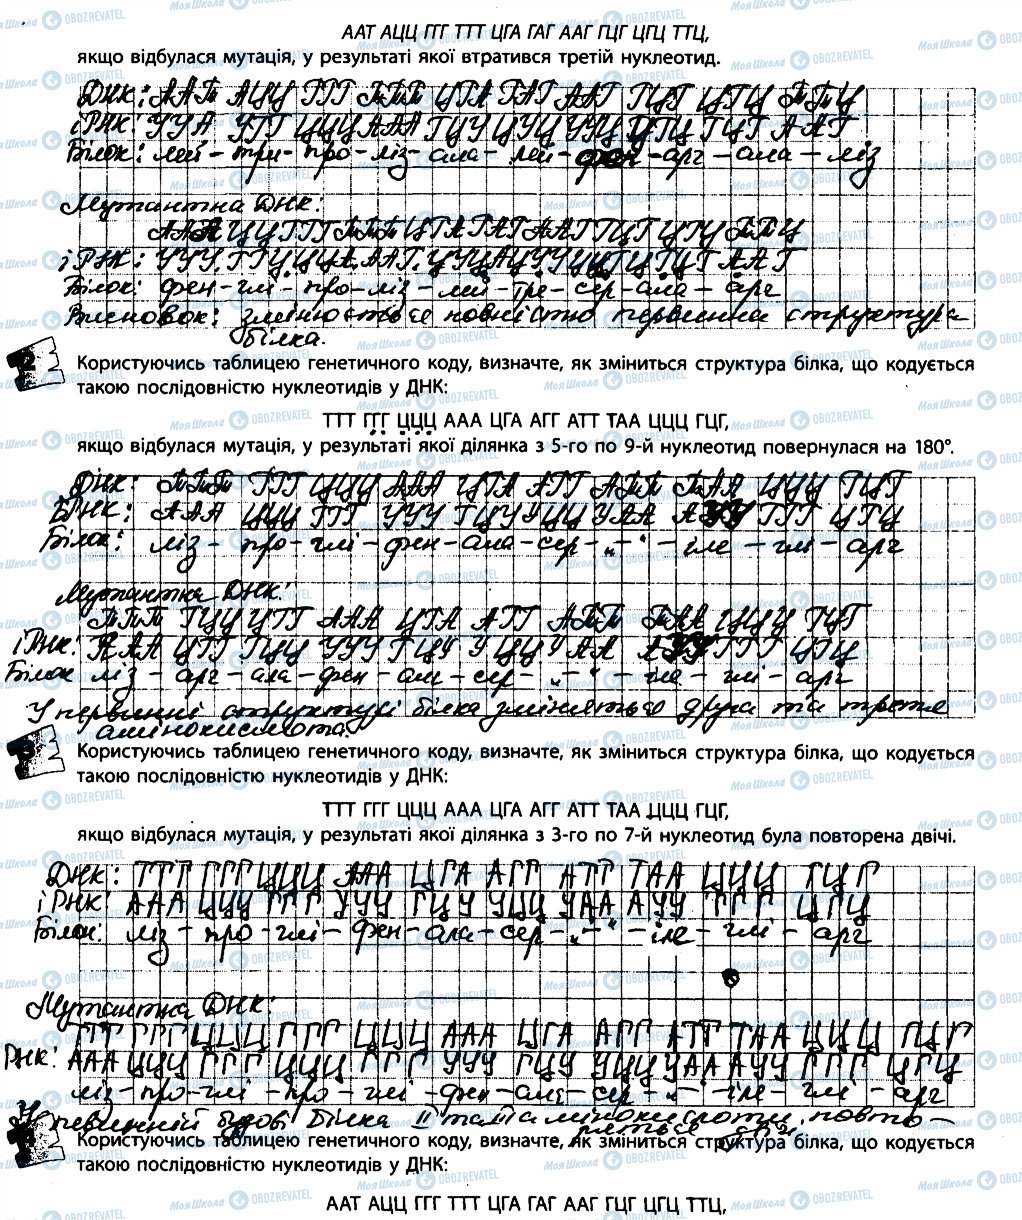 ААТ АЦЦ ГГГ ТТТ ЦГА ГАГ ААГ ГЦГ ЦГЦ ТТЦ,
якщо відбулася мутація, у результаті якої втратився третій нуклеотид.
ДНК: ААТ АЦЦ ГГГ ТТТ ЦГА ГАГ ААГ ГЦГ ЦГЦ ТТЦ
іРНК: УУА УГГ ЦЦЦ ААА ГЦУ ЦУЦ УУЦ ЦГЦ ГЦГ ААГ
Білок: лей – три – про – ліз – ала – лей – фен – арг – ала – ліз
Мутантна ДНК:
ААА ЦЦГ ГГТ ТТЦ ГАГ АГА АГГ ЦГЦ ГЦТ ТЦ
іРНК: УУУ ГГЦ ЦЦА ААГ ЦУЦ
Білок: фен – глі – про – ліз – лей – тре – сер – ала – арг
Висновок: змінюється повністю первинна структура
білка.
Користуючись таблицею генетичного коду, визначте, як зміниться структура білка, що кодується
такою послідовністю нуклеотидів у ДНК:
ТТТ ГГГ ЦЦЦ ААА ЦГА АГГ АТТ ТАА ЦЦЦ ГЦГ,
якщо відбулася мутація, у результаті якої ділянка з 5-го по 9-й нуклеотид повернулася на 180°.
ДНК: ТТТ ГГГ ЦЦЦ ААА ЦГА АГГ АТТ ТАА ЦЦЦ ГЦГ
РНК: ААА ЦЦЦ ГГГ УУУ ГЦУ УЦЦ УАА АУУ ГГГ ЦГЦ
Білок: ліз – про – глі – фен – ала – сер – „–" – іле – глі – арг
Мутантна ДНК:
ТТТ ГЦЦ ЦГГ ААА ЦГА АГГ АТТ ТАА ЦЦЦ ГЦГ
іРНК: ААА ЦГГ ГЦЦ УУУ ГЦУ УЦЦ УАА АУУ ГГГ ЦГЦ
Білок ліз – арг – ала – фен – ала – сер – „–" – іле – глі – арг
У первинній структурі білка зміняться друга та третя
амінокислота.
Користуючись таблицею генетичного коду, визначте, як зміниться структура білка, що кодується
такою послідовністю нуклеотидів у ДНК:
ТТТ ГГГ ЦЦЦ ААА ЦГА АГГ АТТ ТАА ЦЦЦ ГЦГ,
якщо відбулася мутація, у результаті якої ділянка з 3-го по 7-й нуклеотид була повторена двічі.
ДНК: ТТТ ГГГ ЦЦЦ ААА ЦГА АГГ АТТ ТАА ЦЦЦ ГЦГ
іРНК: ААА ЦЦЦ ГГГ УУУ ГЦУ УЦЦ УАА АУУ ГГГ ЦГЦ
Білок: ліз – про – глі – фен – ала – сер – „–" – іле – глі – арг
Мутантна ДНК:
ТТТ ГГГ ЦЦЦ ГГГ ЦЦЦ ААА ЦГА АГГ АТТ ТАА ЦЦЦ ГЦГ
РНК: ААА ЦЦЦ ГГГ ЦЦЦ ГГГ УУУ ГЦУ УЦЦ УАА АУУ ГГГ ЦГЦ
ліз – про – глі – про – глі – фен – ала – сер – „–" – іле – глі – арг
У первинній будові білка II та амінокислоти повто-
ряться
Користуючись таблицею генетичного коду, визначте, як зміниться структура білка, що кодується
такою послідовністю нуклеотидів у ДНК:
ААТ АЦЦ ГГГ ТТТ ЦГА ГАГ ААГ ГЦГ ЦГЦ ТТЦ,